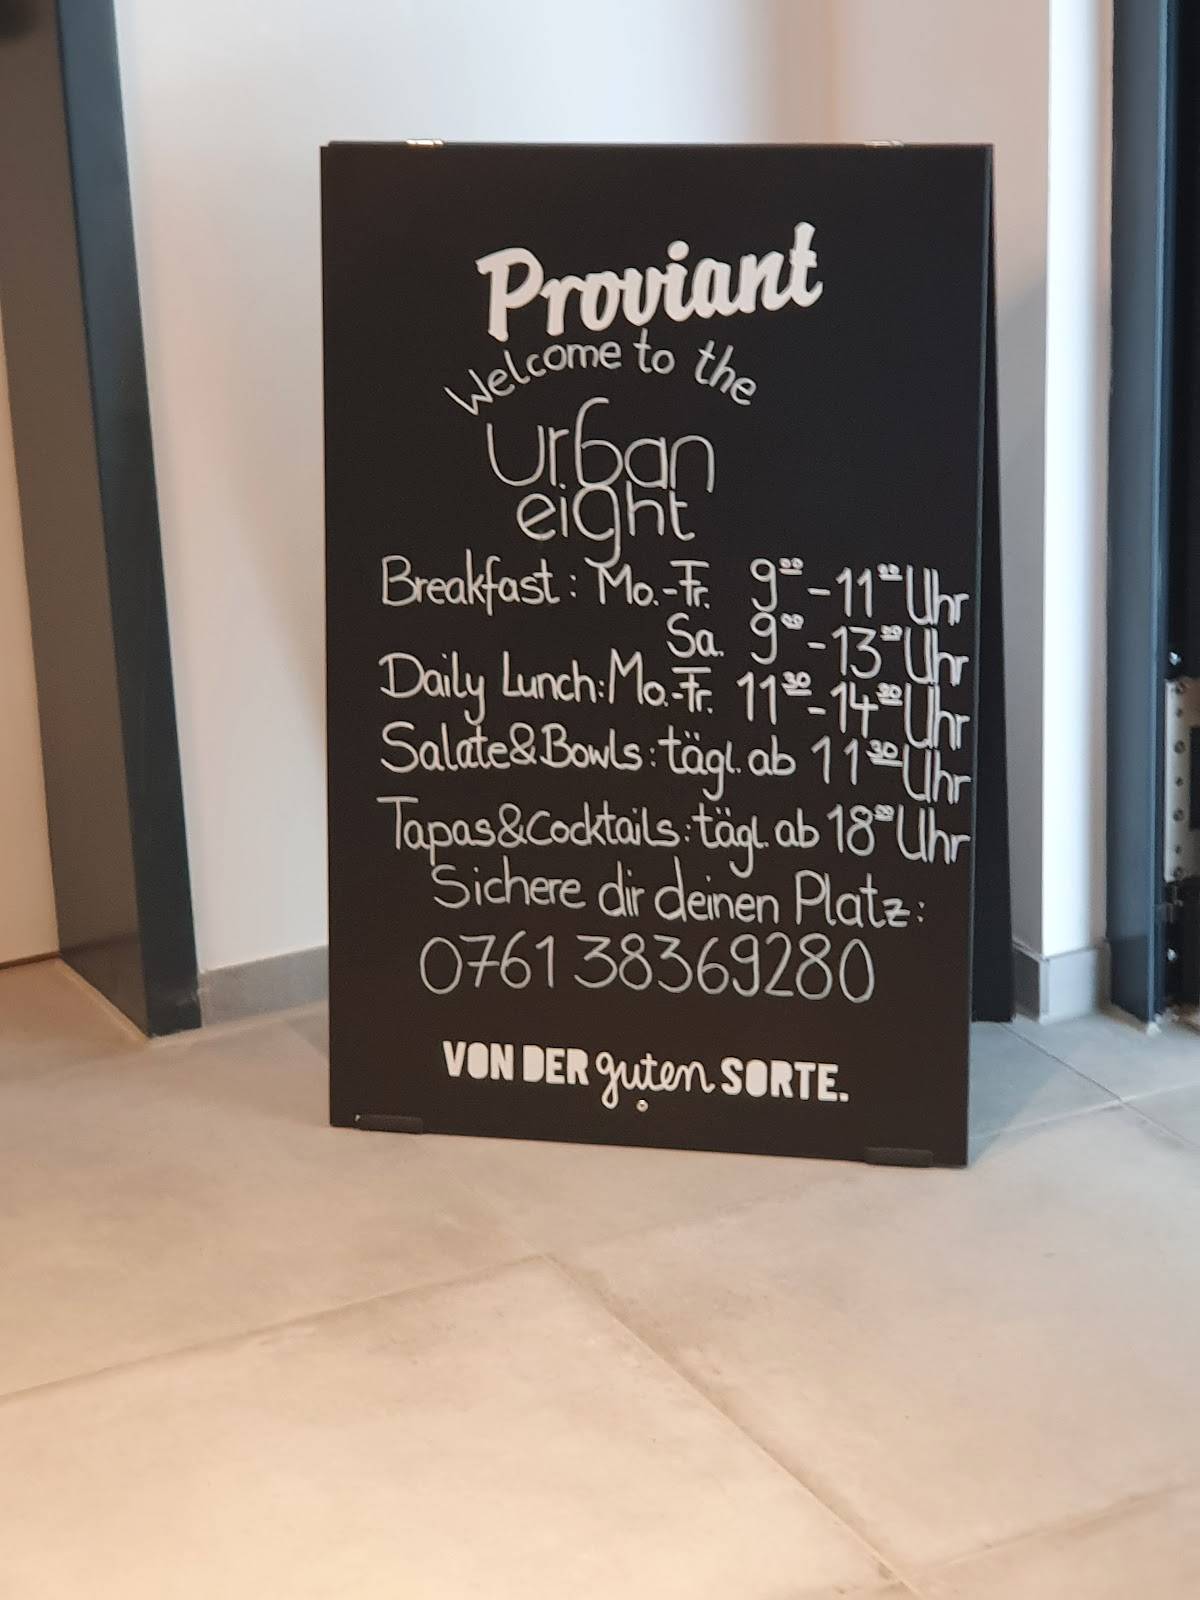 Proviant
Welcome to the
urban
eight
Breakfast: Mo.-Fr. 9⁰⁰-11⁰⁰ Uhr
Sa. 9⁰⁰-13⁰⁰ Uhr
Daily Lunch: Mo.-Fr. 11³⁰-14³⁰ Uhr
Salate&Bowls: tägl. ab 11³⁰ Uhr
Tapas&Cocktails: tägl. ab 18⁰⁰ Uhr
Sichere dir deinen Platz:
0761 38369280
VON DER guten SORTE.